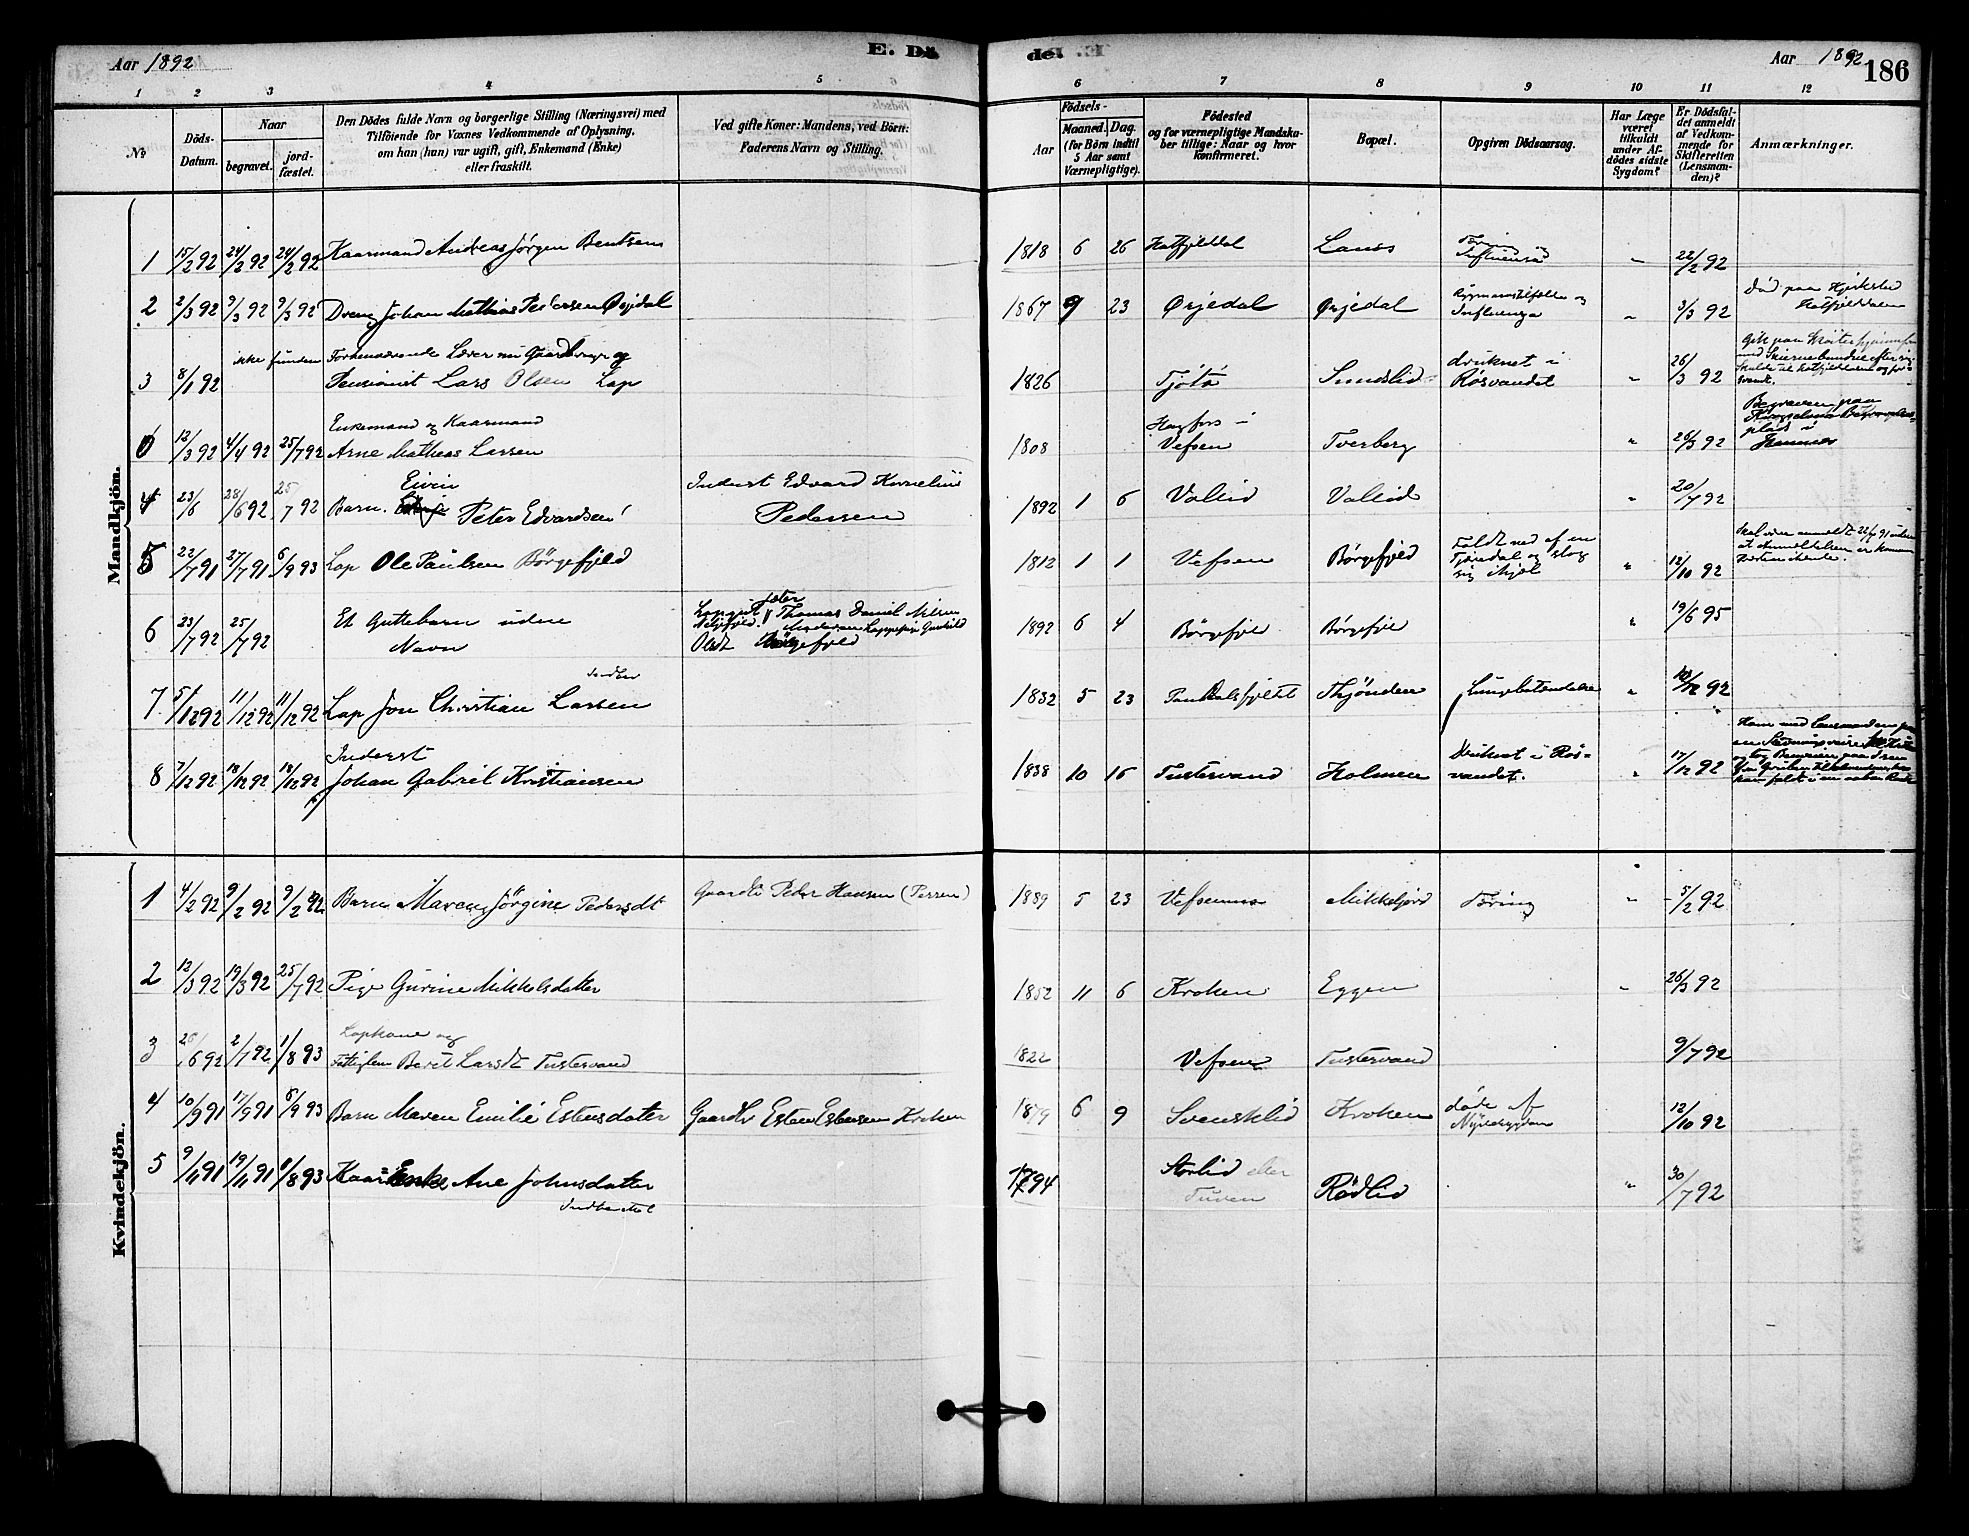 Aar 1892
E. Dö
de. E.
Aar 1892
186
1 2 3 4 5 6 7 8 9 10 11 12
No
Döds-
Datum.
Naar
begravet.
jord-
fæstet.
Den Dödes fulde Navn og borgerlige Stilling (Næringsvei) med
Tilföiende for Voxnes Vedkommende af Oplysning,
om han (hun) var ugift, gift, Enkemand (Enke)
eller fraskilt.
Ved gifte Koner: Mandens, ved Börn:
Faderens Navn og Stilling.
Födsels-
Aar
Maaned. Dag.
(for Börn indtil
5 Aar samt
Værnepligtige).
Födested
og for værnepligtige Mandska-
ber tillige: Naar og hvor
konfirmeret.
Bopæl.
Opgiven Dödsaarsag.
Har Læge
været
tilkaldt
under Af-
dödes sidste
Sygdom?
Er Dödsfal-
det anmeldt
af Vedkom-
mende for
Skifteretten
(Lensman-
den)?
Anmærkninger.
Mandkjön.
1 15/2 92 24/2 92 24/2 92 Kaarmand Andreas Jörgen Bentsen 1818 6 26 Hatfjelddal Influensa " 22/2 92
2 2/3 92 9/3 92 9/3 92 Dreng Johan Mathias Pedersen Ørjedal 1867 9 23 Ørjedal Ørjedal og Influenza " 3/3 92
Død paa Hatfjelddalen
3 8/1 92 ikke funden Forhenværende Lærer nu Gaardbruger og
Pensionist Lars Olsen Lap 1826 Tjötö Sundslid druknet i
Røsvandet " 26/3 92
6 12/3 92 4/4 92 25/7 92 Enkemand og Kaarmand
Arne Mathias Larsen 1808 Hagfors i
Vefsen Tverberg " 26/3 92
Begraven paa
4 23/6 28/6 92 25/7 92 Barn. Eivin
Peter Edvardsen Inderst Edvard Kornelius
Pedersen 1892 1 6 Vallid Vallid " 20/7 92
5 22/7 91 27/7 91 6/9 93 Lap Ole Paulsen Börgefjeld 1812 1 1 Vefsen Börgefjeld Faldt ned af en
og slog
sig ihjel " 12/10 92
6 23/7 92 25/7 92 Et Guttebarn uden
Navn Thomas Daniel Nilsen
Olsdt Börgefjeld 1892 6 4 Börgefjeld Börgefjel " 19/6 95
7 5/12 92 11/12 92 11/12 92 Lap Jon Christian Larsen 1832 5 23 Thjönden Lungebetendelse " 10/12 92
8 7/12 92 18/12 92 18/12 92 Inderst
Johan Gabriel Kristiansen 1838 10 16 Tustervand Holmen Druknet i Røs-
vandet. " 17/12 92
Kvindekjön.
1 4/2 92 9/2 92 9/2 92 Barn Maren Jörgine Pedersdt Gaardb Peder Hansen 1889 5 23 Vefsen Mikkeljord Tæring " 5/2 92
2 12/3 92 19/3 92 25/7 92 Pige Gurine Mikkelsdatter 1852 11 6 Kroken Eggen " 26/3 92
3 26/6 92 2/7 92 1/8 93 Lapkone og
Fattiglem Berit Larsdt Tustervand 1822 Vefsen Tustervand 9/7 92
4 10/9 91 17/9 91 6/9 93 Barn Maren Emilie Estensdatter Gaardb Esten Estensen Kroken 1879 6 9 Svensklid Kroken døde af 12/10 92
5 9/11 91 19/11 91 1/8 93 Kaar Enke Ane Johnsdatter 1794 Storlid eller
Tuven Rødlid " 30/7 92